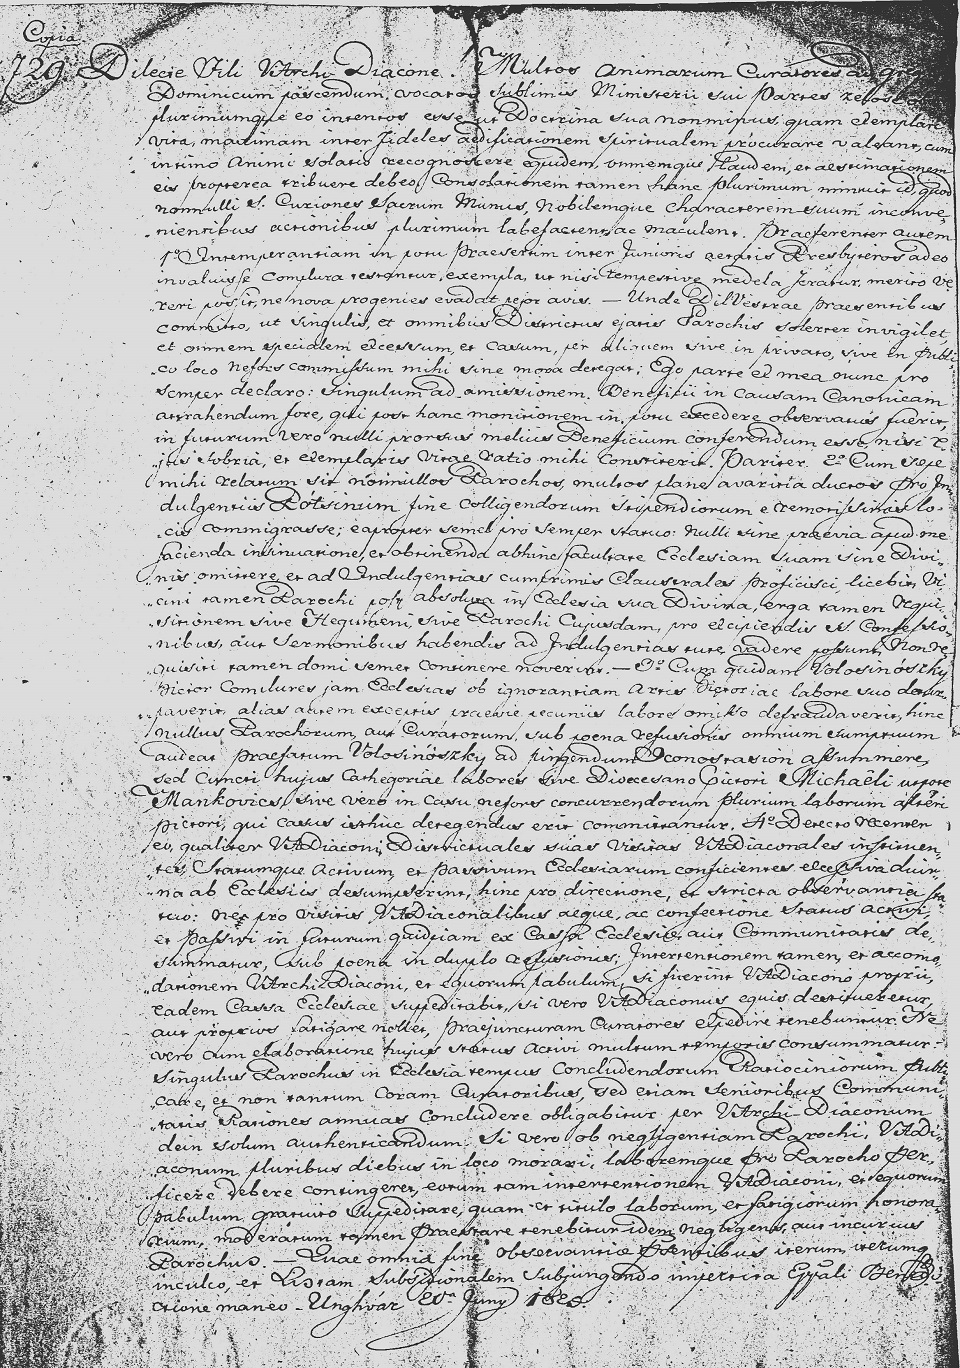 Copia
729. Dilecte Fili VArchi-Diacone. Multos Animarum Curatores, ad gregem
Dominicum pascendum vocatos sublimis Ministerii sui Partes zelose
plurimumque eo intentos esse, ut Doctrina sua nonminus, quam exemplare
vita, maximam inter fideles aedificationem spiritualem procurare valeant, cum
intimo Animi solatio recognoscere equidem, omnemque Laudem, et aestimationem
eis propterea tribuere debeo, Consolationem tamen hanc plurimum minuit id, quod
nonnulli V. Curiones Sacrum Munus, Nobilemque characterem suum inconve-
nientibus actionibus plurimum labefactent, ac maculent. Praeferenter autem
1o Intemperantiam in potu Praesertim inter Junioris aetatis Presbyteros adeo
invaluisse Complura testantur exempla, ut nisi tempestive medela feratur, merito ve-
reri possit, ne nova progenies evadat pejor avis. — Unde DilVestrae praesentibus
committo, ut singulis, et omnibus Districtus ejatis Parochis solerter invigilet,
et omnem specialem excessum, et Casum, per aliquem sive in privato, sive in Publi-
co loco nefors commissum mihi sine mora detegat; Ego parte ex mea nunc pro
semper declaro: Singulum ad amissionem Beneficii in Causam Canonicam
attrahendum fore, qui post hanc monitionem in potu excedere observatus fuerit,
in futurum vero nulli prorsus melius Beneficium conferendum esse, nisi e-
jus sobria, et exemplaris vitae ratio mihi Constiterit. Pariter 2o Cum saepe
mihi relatum sit nonnullos Parochos, multos plane avaritia ductos pro In-
dulgentiis Potsinum fine colligendorum stipendiorum e remotissimis lo-
cis commigrasse; eapropter semel pro semper statuo: nulli sine praevia apud me
facienda insinuatione, et obtinenda abhinc facultate Ecclesiam suam sine Divi-
nis omittere, et ad Indulgentias cumprimis Claustrales proficisci licebit, Vi-
cini tamen Parochi post absoluta in Ecclesia sua Divina, erga tamen requi-
sitionem sive Hegumeni, sive Parochi Cujusdam, pro excipiendis SS. Confessio-
nibus, aut Sermonibus habendis ad Indulgentias tute vadere possunt, Non re-
quisiti tamen domi semet Continere noverint. — 3o Cum quidam Volosinószky
Pictor Complures jam Ecclesias ob ignorantiam Artis Pictoriae labore suo detur-
paverit, alias autem exceptis praevie pecuniis labore omisso defraudaverit, hinc
nullus Parochorum, aut Curatorum, sub poena refusionis omnium sumptuum
audeat praefatum Volosinószky ad pingendum Iconostasion assumere,
sed Cuncti hujus Cathegoriae labores sive Dioecesano Pictori Michaëli utpote
Mankovics, sive vero in casu nefors concurrendorum plurium laborum alteri
Pictori, qui casus isthuc detegendus erit committantur. 4o Detecto recenter
eo, qualiter VADiaconi Districtuales suas Visitas VADiaconales instituen-
tes Statumque Activum, et Passivum Ecclesiarum conficientes excessiva diur-
na ab Ecclesiis desumpserint, hinc pro directione, et stricta observantia sta-
tuo: nec pro visitis VADiaconalibus aeque, ac confectione Status activi,
et passivi in futurum quidpiam ex Cassa Ecclesiae, aut Communitatis de-
summatur, sub poena in duplo refusionis; Intertentionem tamen, et accomo-
dationem VArchi-Diaconi, et equorum pabulum, si fuerint VADiacono proprii,
eadem Cassa Ecclesiae suppeditabit, si vero VADiaconus equis destitueretur,
aut proprios fatigare nollet, Praejuncturam Curatores expedire tenebuntur. Ne
vero cum elaboratione hujus Status Activi multum temporis consummatur:
Singulus Parochus in Ecclesia tempus Concludendorum Ratiociniorum Publi-
care, et non tantum Coram Curatoribus, sed etiam Senioribus Communi-
tatis Rationes annuas Concludere obligabitur per VArchi-Diaconum
dein solum authenticandum. Si vero ob negligentiam Parochi, VADi-
aconum pluribus diebus in loco morari, laboremque pro Parocho per-
ficere debere contingeret, eotum tam intertentionem VADiaconi, et equorum
pabulum gratuito suppeditare, quam et titulo laborum, et fatigiorum honora-
rium, moderatum tamen Praestare tenebitur idem negligens, aut incurius
Parochus. — Quae omnia fine observantiae Praesentibus iterum, iterumque
inculco, et Listam Subsidionalem Subjungendo impertita Eppali Bene-
ctione maneo. Unghvár Junÿ